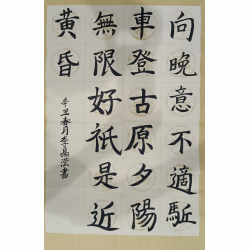 向晚意不適駈
車登古原夕陽
無限好祇是近
黄昏
辛丑春月李書